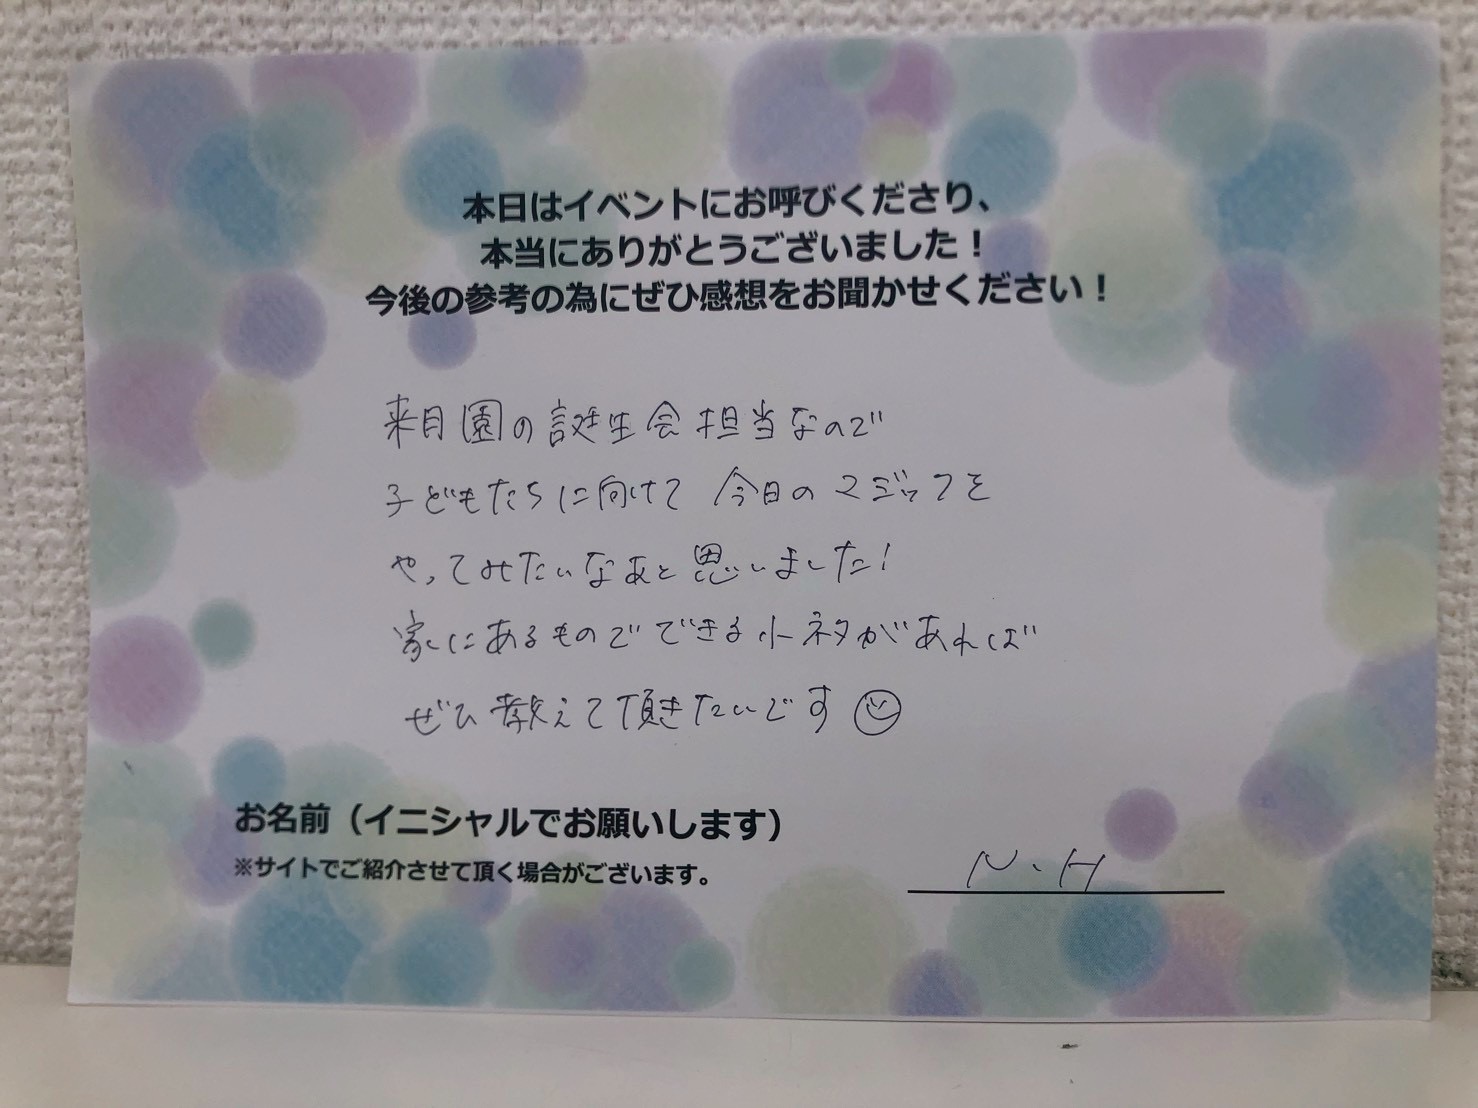 本日はイベントにお呼びくださり、
本当にありがとうございました！
今後の参考の為にぜひ感想をお聞かせください！
来月園の誕生会担当なので
子どもたちに向けて 今日のマジックを
やってみたいなぁと思いました！
家にあるものでできる小ネタがあれば
ぜひ教えて頂きたいです☺
お名前（イニシャルでお願いします）
※サイトでご紹介させて頂く場合がございます。
N.H